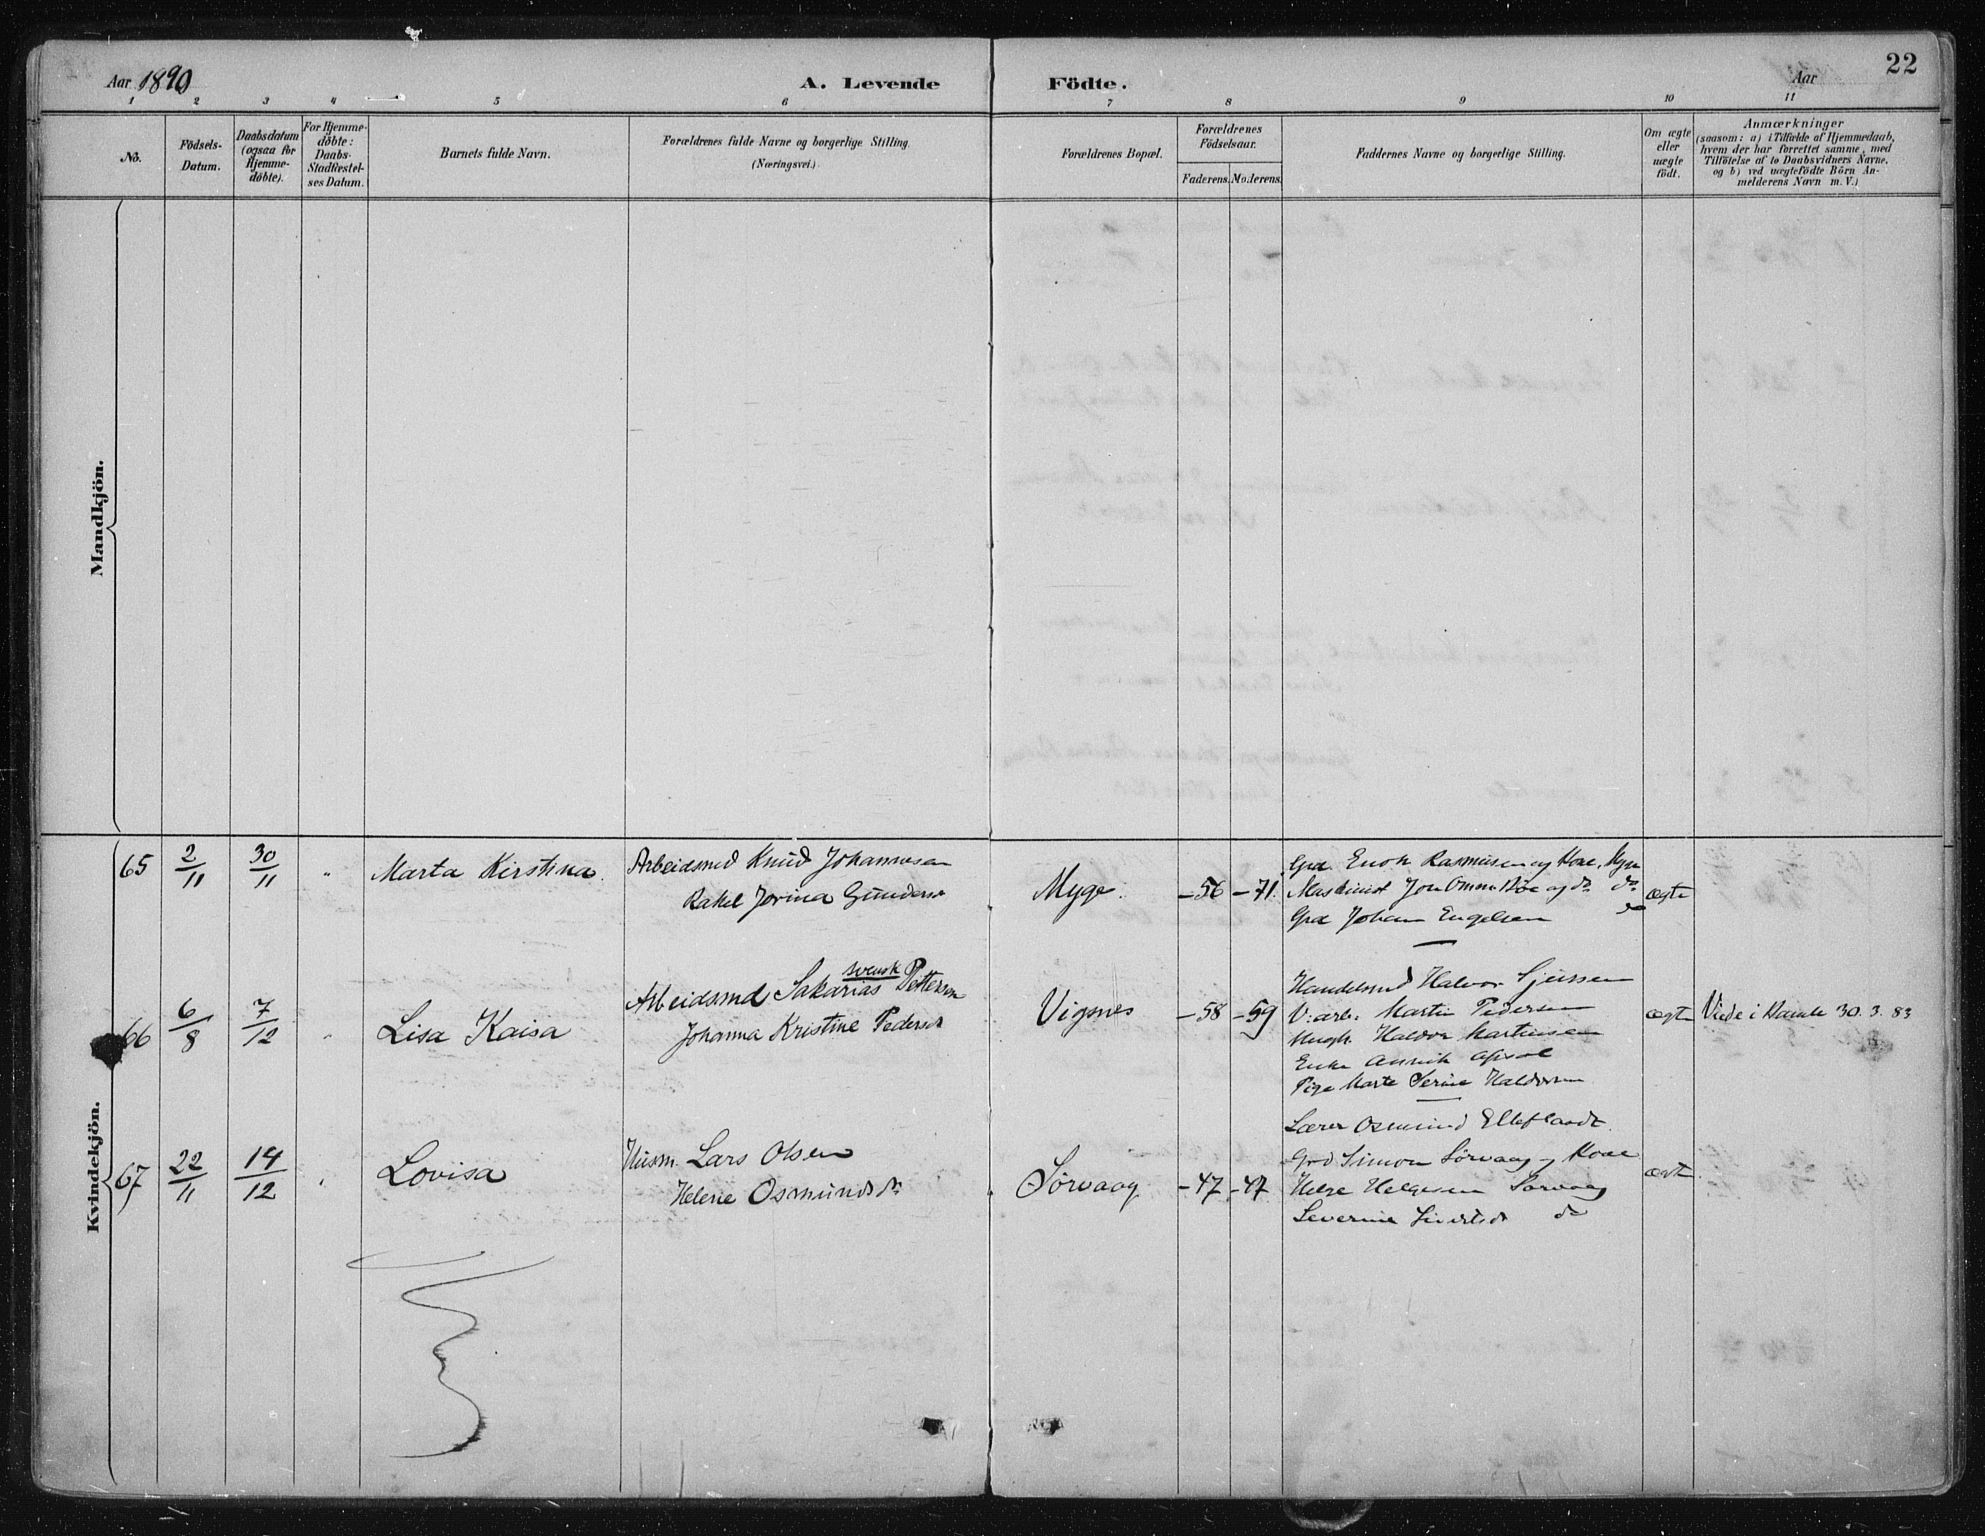 22
Aar 1890 A. Levende Födte. Aar
1 2 3 4 5 6 7 8 9 10 11
No.
Födsels-
Datum.
Daabsdatum
(ogsaa for
Hjemme-
döbte).
For Hjemme-
döbte:
Daabs-
Stadfæstel-
ses Datum.
Barnets fulde Navn.
Forældrenes fulde Navne og borgerlige Stilling.
(Næringsvei.)
Forældrenes Bopæl.
Forældrenes
Födselsaar.
Faderens. Moderens.
Faddernes Navne og borgerlige Stilling.
Om ægte
eller
uægte
födt.
Anmærkninger
(saasom: a) i Tilfælde af Hjemmedaab,
hvem der har forrettet samme, med
Tilföielse af to Daabsvidners Navne,
og b) ved uægtefödte Börn An-
melderens Navn m. V.)
Mandkjön.
Kvindekjön.
65 2/11 30/11 " Marta Kirstina.
Arbeidsmd Knud Johannesen
Rakel Jorina Gundersd
Myge. -56 -71.
Grd. Enok Rasmusen og Kone, Myge
Maskinist Jon Ommundsen og do do
Grd Johan Engelsen do
ægte
66 6/8 7/12 " Lisa Kaisa
svensk
Arbeidsmd Sakarias Petterson
Johanna Kristine Pedersd
Vigsnes -58 -59
Handelsmd Halvor Sjursen
V. arb. Martin Pedersen
Ungk. Haldor Martinsen
Enke Annik
Pige Marte Serine Haldorsen
ægte Viede i Bamle 30. 3. 83
67 22/11 14/12 " Lovisa
Husm. Lars Olsen
Helene Osmundsdr
Sørvaag -47 -47
Lærer Osmund Elleflaadt.
Grd Simon Sørvaag og Kone
Helge Helgesen Sørvaag
Severine Sivertsdr do
ægte